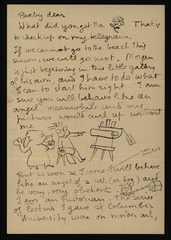 Baby dear
What did you get the That
to back up on my telegram.
If we cannot go to the beach this
summer, we could go west. Mogu
is just beginning in this little gallery
of his own and I have to do what
I can to start him right. I am
sure you will behave like an
angel
pictures would curl up without
me
But as soon as I come I will behave
like an angel of a cat (or boy) and
be very, very obedient
I am an historian. The series
of lectures I gave at Columbia
University were on modern art,